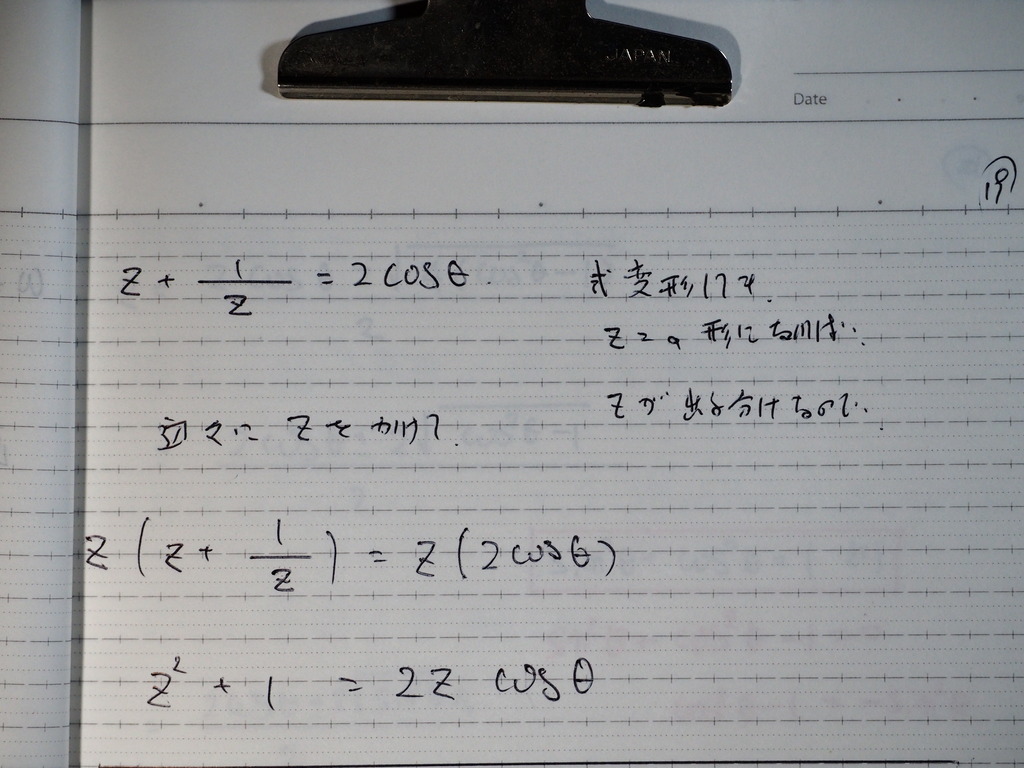 JAPAN
Date
19
z + 1/z = 2 cosθ.
式変形して
z = の形になれば..
zが出る分けなので..
Zをかけて.
z ( z + 1/z ) = z (2 cosθ)
z² + 1 = 2z cosθ